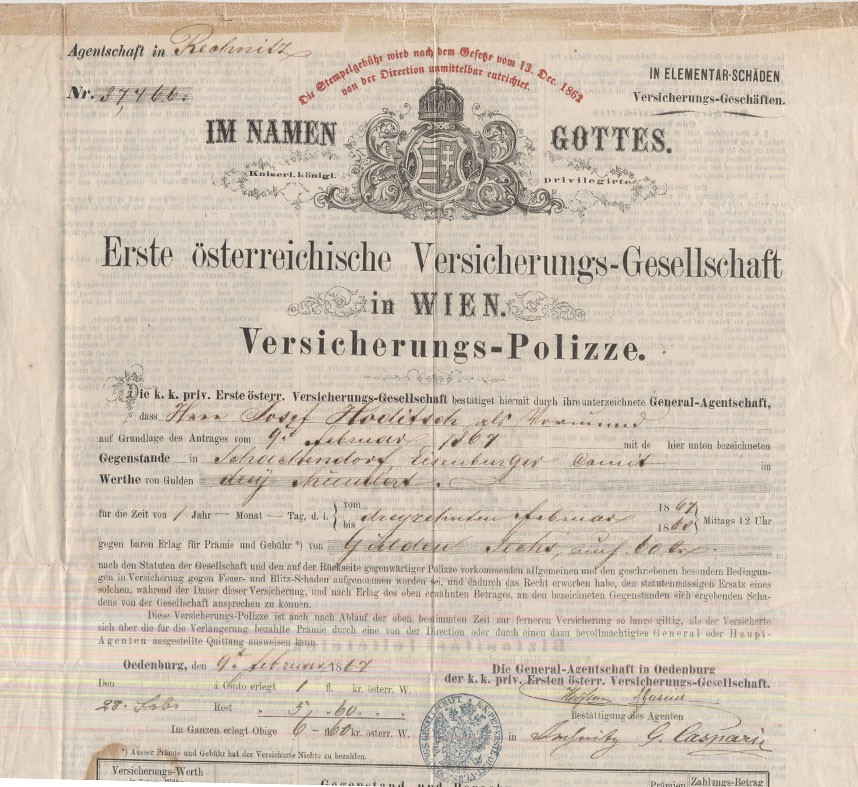 Agentschaft in Rechnitz
Nr. 37466.
Die Stempelgebühr wird nach dem Gesetze vom 13. Dec. 1862
von der Direction unmittelbar entrichtet.
IN ELEMENTAR-SCHÄDEN
Versicherungs-Geschäften.
IM NAMEN GOTTES.
Kaiserl. königl. privilegirte
Erste österreichische Versicherungs-Gesellschaft
in WIEN.
Versicherungs-Polizze.
Die k. k. priv. Erste österr. Versicherungs-Gesellschaft bestätiget hiermit durch ihre unterzeichnete General-Agentschaft,
dass Herr Josef Hoditsch als Vormund
auf Grundlage des Antrages vom 9. Februar 1867 mit de hier unten bezeichneten
Gegenstande in Schachendorf, Eisenburger Comit im
Werthe von Gulden drey Hundert.
für die Zeit von 1 Jahr — Monat — Tag, d. i. vom bis dreyzehnten Februar 1867 1868 Mittags 12 Uhr
gegen baren Erlag für Prämie und Gebühr *) von Gulden Sechs, 60
nach den Statuten der Gesellschaft und den auf der Rückseite gegenwärtiger Polizze vorkommenden allgemeinen und den geschriebenen besondern Bedingun-
gen in Versicherung gegen Feuer- und Blitz-Schaden aufgenommen worden sei, und dadurch das Recht erworben habe, den statutenmässigen Ersatz eines
solchen, während der Dauer dieser Versicherung, und nach Erlag des oben erwähnten Betrages, an den bezeichneten Gegenständen sich ergebenden Scha-
dens von der Gesellschaft ansprechen zu können.
Diese Versicherungs-Polizze ist auch nach Ablauf der oben bestimmten Zeit zur ferneren Versicherung so lange giltig, als der Versicherte
sich über die für die Verlängerung bezahlte Prämie durch eine von der Direction oder durch einen dazu bevollmächtigten General oder Haupt-
Agenten ausgestellte Quittung ausweisen kann.
Oedenburg, den 9. Februar 1867
Die General-Agentschaft in Oedenburg
der k. k. priv. Ersten österr. Versicherungs-Gesellschaft.
Den à Conto erlegt 1 fl. kr. österr. W.
28. Febr Rest " 5 " 60 " " "
Bestättigung des Agenten
Im Ganzen erlegt Obige 6-60 kr. österr. W.
in Rechnitz G. Casparic
*) Ausser Prämie und Gebühr hat der Versicherte Nichts zu bezahlen.
Versicherungs-Werth
Gegenstand und
Prämien
Zahlungs-Betrag